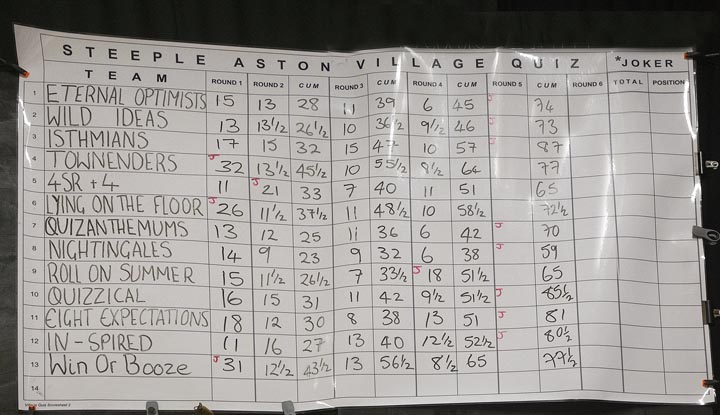 STEEPLE ASTON VILLAGE QUIZ *JOKER
TEAM ROUND 1 ROUND 2 CUM ROUND 3 CUM ROUND 4 CUM ROUND 5 CUM ROUND 6 TOTAL POSITION
1 ETERNAL OPTIMISTS 15 13 28 11 39 6 45 J 74
2 WILD IDEAS 13 13½ 26½ 10 36½ 9½ 46 J 73
3 ISTHMIANS 17 15 32 15 47 10 57 J 87
4 TOWNENDERS J 32 13½ 45½ 10 55½ 8½ 64 77
5 4SR + 4 11 J 21 33 7 40 11 51 65
6 LYING ON THE FLOOR J 26 11½ 37½ 11 48½ 10 58½ 72½
7 QUIZANTHEMUMS 13 12 25 11 36 6 42 J 70
8 NIGHTINGALES 14 9 23 9 32 6 38 J 59
9 ROLL ON SUMMER 15 11½ 26½ 7 33½ J 18 51½ 65
10 QUIZZICAL 16 15 31 11 42 9½ 51½ J 85½
11 EIGHT EXPECTATIONS 18 12 30 8 38 13 51 J 81
12 IN-SPIRED 11 16 27 13 40 12½ 52½ J 80½
13 Win Or Booze J 31 12½ 43½ 13 56½ 8½ 65 77½
14